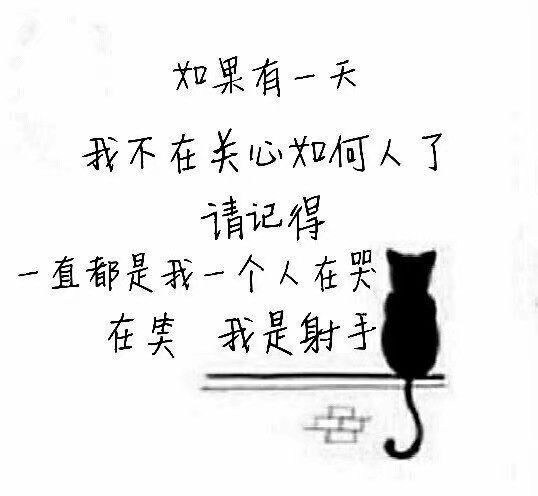 如果有一天
我不在关心如何人了
请记得
一直都是我一个人在哭
在笑 我是射手